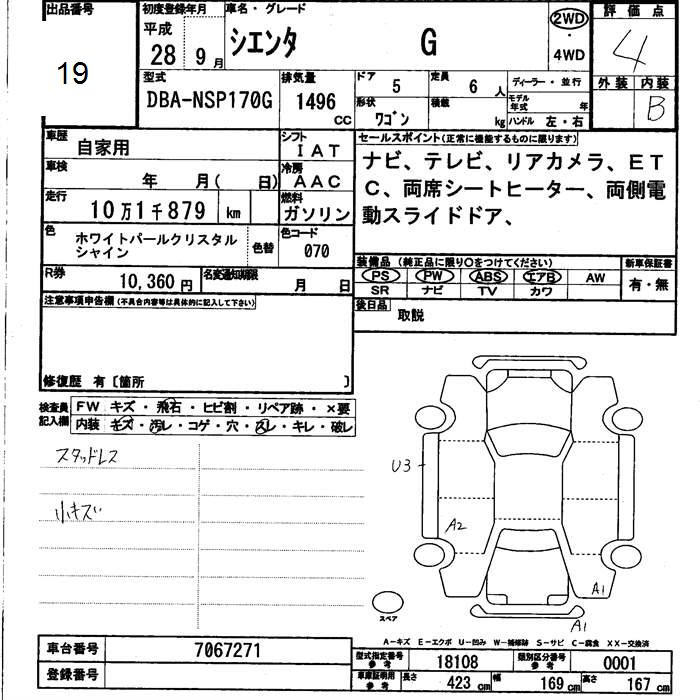 出品番号 初度登録年月 車名・グレード 評価点
19 平成 28 9月 シエンタ G 2WD 4WD 4
型式 排気量 ドア 5 定員 6人 ディーラー・並行 外装 内装
DBA-NSP170G 1496 CC 形状 ワゴン 積載 kg モデル年式 年 ハンドル 左・右 B
車歴 自家用 シフト IAT セールスポイント(正常に機能するものに限ります)
車検 年 月( 日) 冷房 AAC ナビ、テレビ、リアカメラ、ET
走行 10万1千879 km 燃料 ガソリン C、両席シートヒーター、両側電
動スライドドア、
色 ホワイトパールクリスタル
シャイン 色替 色コード 070
装備品(純正品に限り〇をつけてください) 新車保証書
R券 10,360円 名変通知期限 月 日 PS PW ABS エアB AW 有・無
SR ナビ TV カワ
注意事項申告欄(不具合内容等は具体的に記入して下さい) 後日品 取説
修復歴 有〔箇所 〕
検査員 FW キズ・飛石・ヒビ割・リペア跡・×要
記入欄 内装 キズ・汚レ・コゲ・穴・スレ・キレ・破レ
スタッドレス
U3
小キズ
A2
A1
スペア
A1
A-キズ E-エクボ U-凹み W-補修跡 S-サビ C-腐食 XX-交換済
車台番号 7067271 型式指定番号 参考 18108 類別区分番号 参考 0001
登録番号 車庫証明用 参考 長さ 423cm 幅 169cm 高さ 167cm